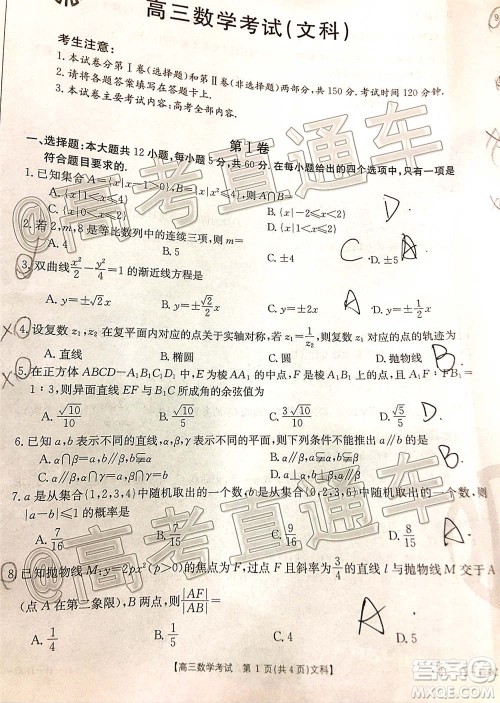 高三数学考试(文科)
考生注意:
1.本试卷分第Ⅰ卷(选择题)和第Ⅱ卷(非选择题)两部分,共150分.考试时间120分钟.
2.请将各题答案填写在答题卡上.
3.本试卷主要考试内容:高考全部内容.
第Ⅰ卷
一、选择题:本大题共12小题,每小题5分,共60分.在每小题给出的四个选项中,只有一项是
符合题目要求的.
1.已知集合A={x|x-1>0},B={x||x|≤2},则
B.{x|-1≤x<2}
C.{x|1<x≤2} D.{x|-2≤x<1}
D
2.若2,m,8是等比数列中的连续三项,则m=
A.4 C.±4 D.±5
C A
3.双曲线x²/2-y²/4=1的渐近线方程是
A.y=±√2x B.y=±√2/2x C.y=±2x D.y=±1/2x
A
4.设复数z₁,z₂在复平面内对应的点关于实轴对称,若z₁=1/z₂,则复数z₁对应的点的轨迹为
A.直线 B.椭圆 C.圆 D.抛物线
B
5.在正方体ABCD—A₁B₁C₁D₁中,E为棱AA₁的中点,F是棱A₁B₁上的点,且A₁F:FB₁=
1:3,则异面直线EF与B₁C所成角的余弦值为
A.√10/10 B.√10/5 C.3√10/10 D.√5/5
D
6.已知a,b表示不同的直线,α,β,γ表示不同的平面,则下列条件不能推出a//b的是
B
7.a是从集合{1,2,3,4}中随机取出的一个数,b是从集合{1,2,3,6}中随机取出的一个数,则
|a-b|≤1的概率是
A.7/16 B.1/2 C.9/16 D.5/8
A
8.已知抛物线M:y²=2px(p>0)的焦点为F,过点F且斜率为3/4的直线l与抛物线M交于A
(点A在第二象限),B两点,则|AF|/|AB|=
A.1/10 B.1/4 C.4 D.5
A
【高三数学考试 第1页(共4页)文科】
@高考直通车
@高考直通车
作业答案圈
MXQE.COM